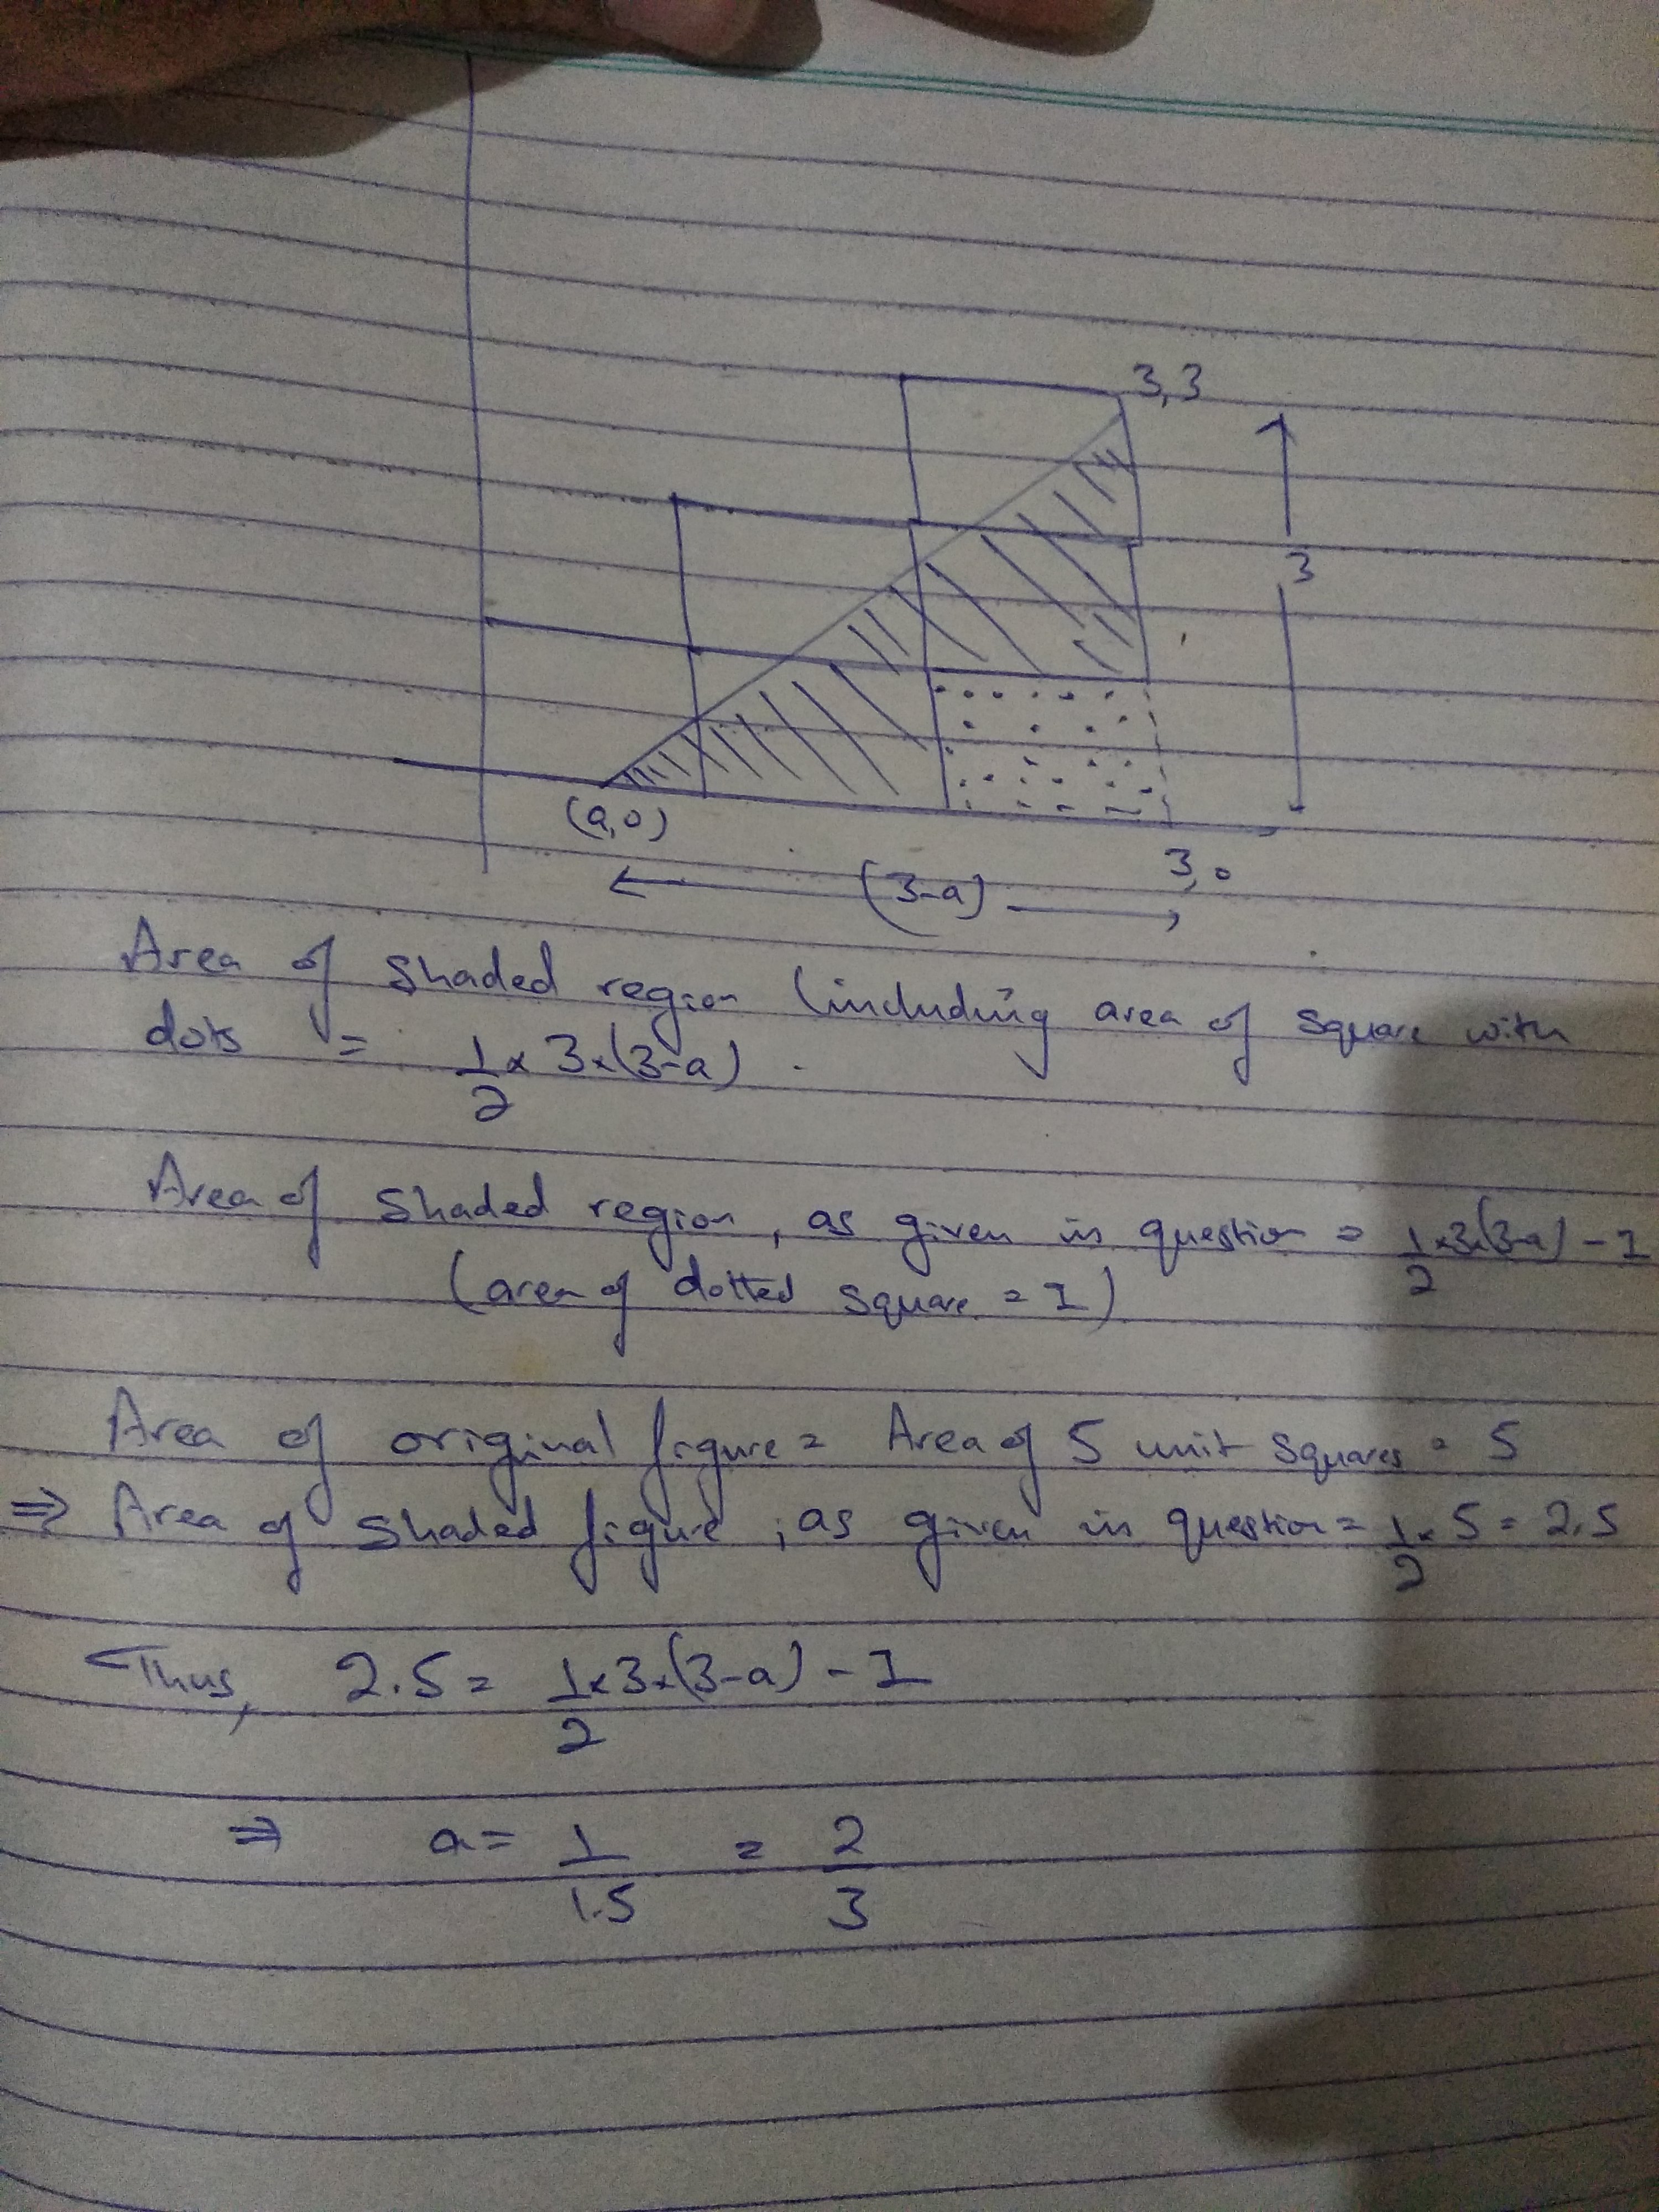 3,3
3
(a,0)
3,0
(3-a)
Area of shaded region (including area of square with
dots = 1/2 × 3×(3-a) .
Area of shaded region, as given in question = 1/2 ×3×(3-a) - 1
(area of dotted square = 1)
Area of original figure = Area of 5 unit squares = 5
⇒ Area of shaded figure, as given in question = 1/2 × 5 = 2.5
Thus, 2.5 = 1/2 × 3×(3-a) - 1
⇒ a = 1/1.5 = 2/3